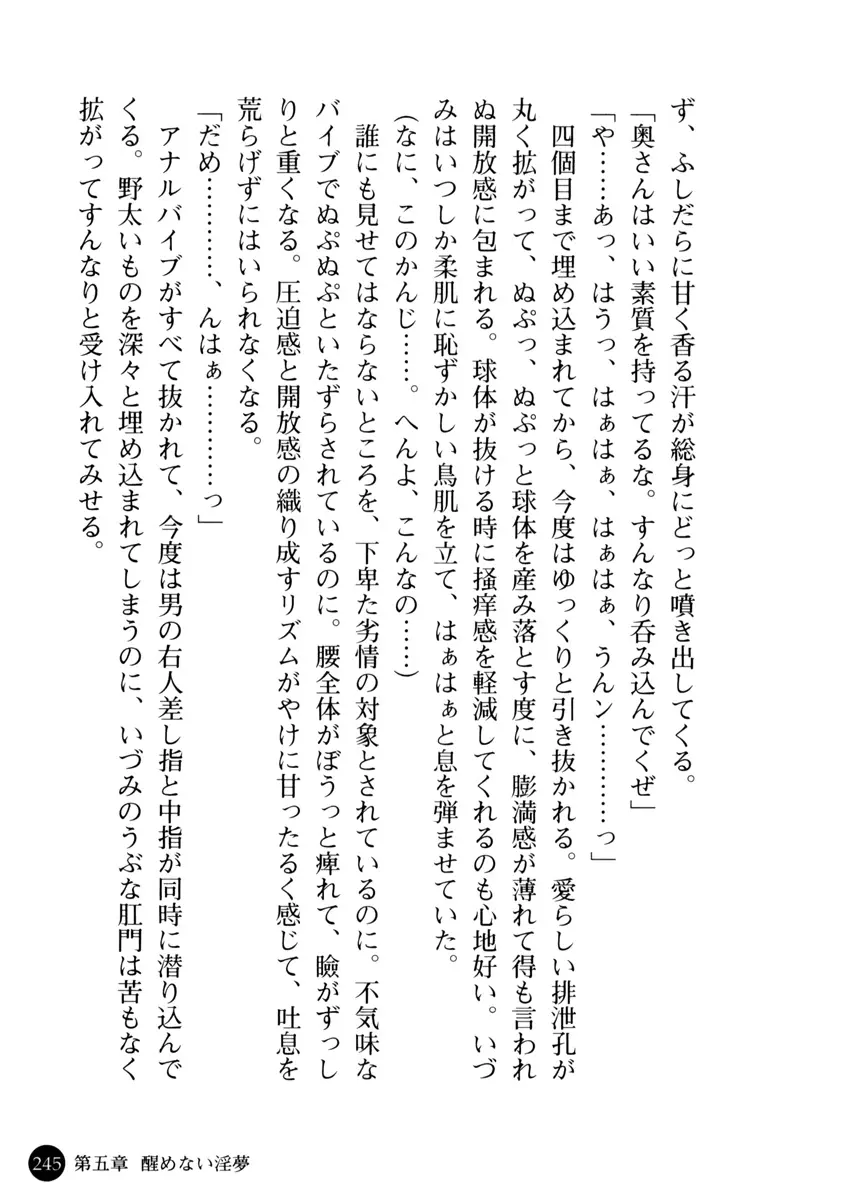 ず、ふしだらに甘く香る汗が総身にどっと噴き出してくる。
「奥さんはいい素質を持ってるな。すんなり呑み込んでくぜ」
「や……あっ、はうっ、はぁはぁ、はぁはぁ、うんン…………っ」
四個目まで埋め込まれてから、今度はゆっくりと引き抜かれる。愛らしい排泄孔が
丸く拡がって、ぬぷっ、ぬぷっと球体を産み落とす度に、膨満感が薄れて得も言われ
ぬ開放感に包まれる。球体が抜ける時に掻痒感を軽減してくれるのも心地好い。いづ
みはいつしか柔肌に恥ずかしい鳥肌を立て、はぁはぁと息を弾ませていた。
(なに、このかんじ……。へんよ、こんなの……)
誰にも見せてはならないところを、下卑た劣情の対象とされているのに。不気味な
バイブでぬぷぬぷといたずらされているのに。腰全体がぼうっと痺れて、瞼がずっし
りと重くなる。圧迫感と開放感の織り成すリズムがやけに甘ったるく感じて、吐息を
荒らげずにはいられなくなる。
「だめ…………、んはぁ…………っ」
アナルバイブがすべて抜かれて、今度は男の右人差し指と中指が同時に潜り込んで
くる。野太いものを深々と埋め込まれてしまうのに、いづみのうぶな肛門は苦もなく
拡がってすんなりと受け入れてみせる。
245 第五章 醒めない淫夢